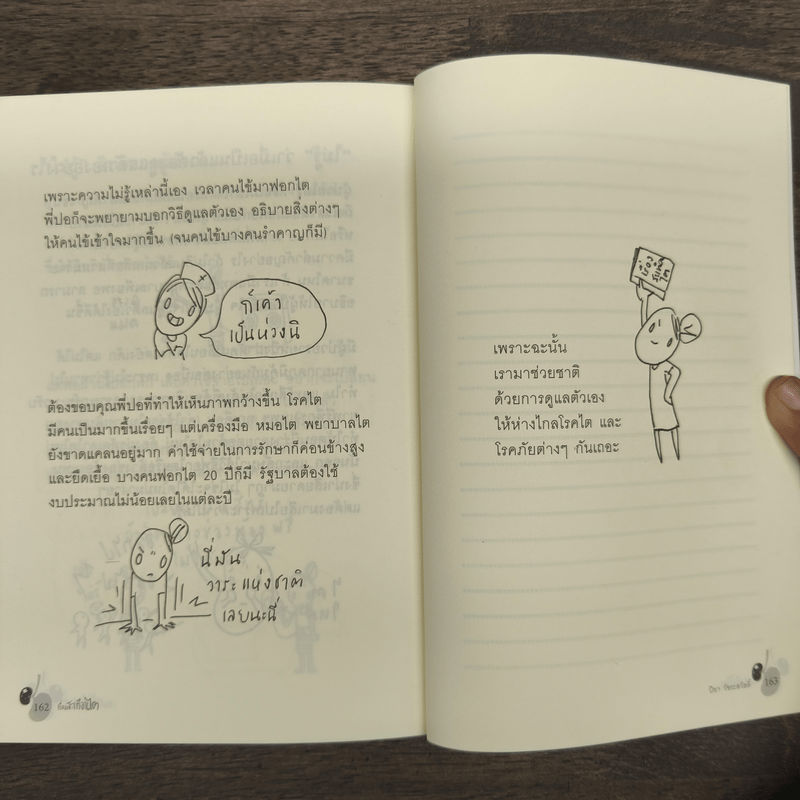 เพราะความไม่รู้เหล่านี้เอง เวลาคนไข้มาฟอกไต
พี่ปอก็จะพยายามบอกวิธีดูแลตัวเอง อธิบายสิ่งต่างๆ
ให้คนไข้เข้าใจมากขึ้น (จนคนไข้บางคนรำคาญก็มี)
ก็เค้า
เป็นห่วงนิ
ต้องขอบคุณพี่ปอที่ทำให้เห็นภาพกว้างขึ้น โรคไต
มีคนเป็นมากขึ้นเรื่อยๆ แต่เครื่องมือ หมอไต พยาบาลไต
ยังขาดแคลนอยู่มาก ค่าใช้จ่ายในการรักษาก็ค่อนข้างสูง
และยืดเยื้อ บางคนฟอกไต 20 ปีก็มี รัฐบาลต้องใช้
งบประมาณไม่น้อยเลยในแต่ละปี
นี่มัน
วาระแห่งชาติ
เลยนะนี่
162
เพราะฉะนั้น
เรามาช่วยชาติ
ด้วยการดูแลตัวเอง
ให้ห่างไกลโรคไต และ
โรคภัยต่างๆ กันเถอะ
163